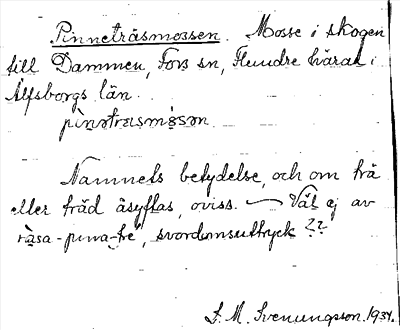 Pinneträsmossen. Mosse i skogen
till Dammen, Fors sn, Flundre härad i
Älfsborgs län.
pìnǝtrasmɔ̀sǝn
Namnets betydelse, och om trä
eller träd åsyftas, oviss. — Väl ej av
räsa-pina-tré, svordomsuttryck??
S. M. Svenungsson. 1934.